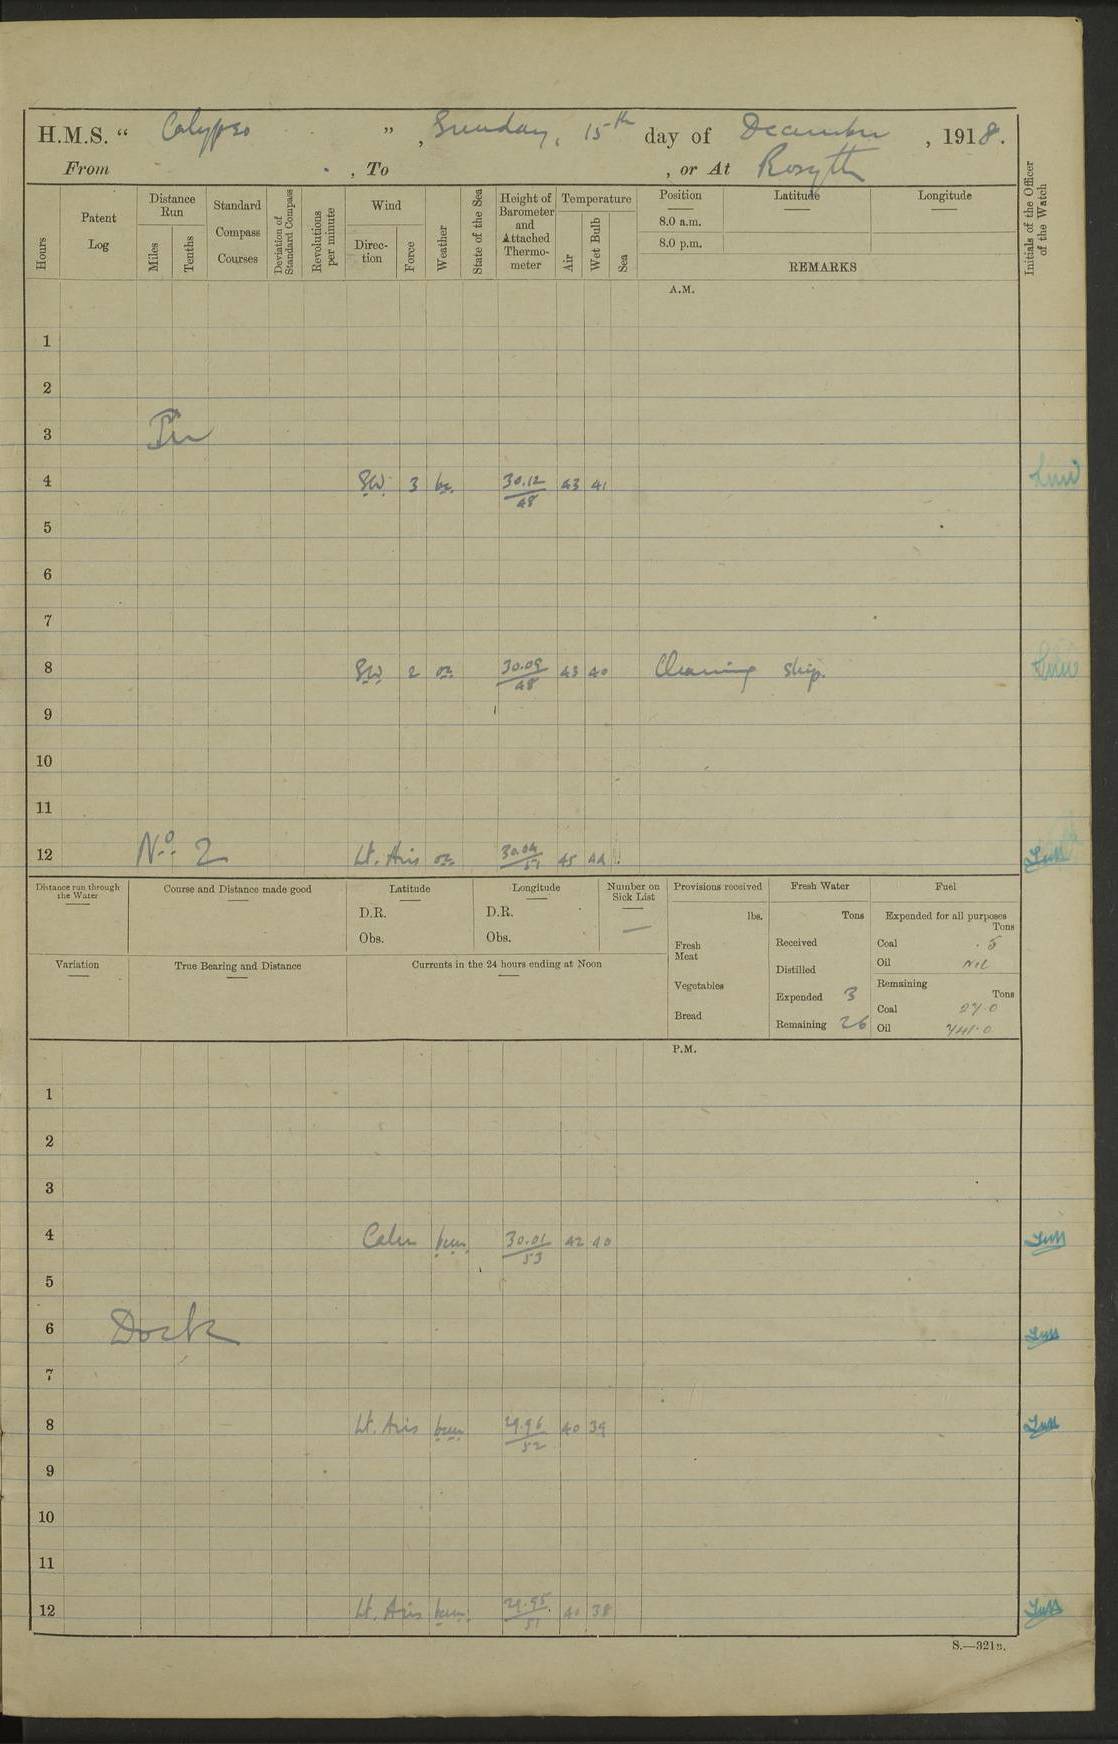 H.M.S. “ Calypso ”, Sunday, 15th day of December, 1918.
From , To , or At Rosyth
Hours
Patent Log
Distance Run
Miles
Tenths
Standard Compass Courses
Deviation of Standard Compass
Revolutions per minute
Wind
Direction
Force
Weather
State of the Sea
Height of Barometer and Attached Thermometer
Temperature
Air
Wet Bulb
Sea
Position
Latitude
Longitude
8.0 a.m.
8.0 p.m.
REMARKS
Initials of the Officer of the Watch
A.M.
1
2
3 In
4 SW 3 bc. 30.12/48 43 41
5
6
7
8 SW 2 30.09/48 43 40 Cleaning ship.
9
10
11
12 No. 2 Lt. Airs 30.04/51 45 44
Distance run through the Water
Course and Distance made good
Latitude
D.R.
Obs.
Longitude
D.R.
Obs.
Number on Sick List
—
Variation
True Bearing and Distance
Currents in the 24 hours ending at Noon
Provisions received
lbs.
Fresh Meat
Vegetables
Bread
Fresh Water
Tons
Received
Distilled
Expended 3
Remaining 26
Fuel
Expended for all purposes
Tons
Coal .5
Oil Nil
Remaining
Tons
Coal 27.0
Oil 741.0
P.M.
1
2
3
4 Calm 30.01/53 42 40
5
6 Dock
7
8 Lt. Airs 29.96/52 40 39
9
10
11
12 Lt. Airs 29.95/51 40 38
S.—321B.